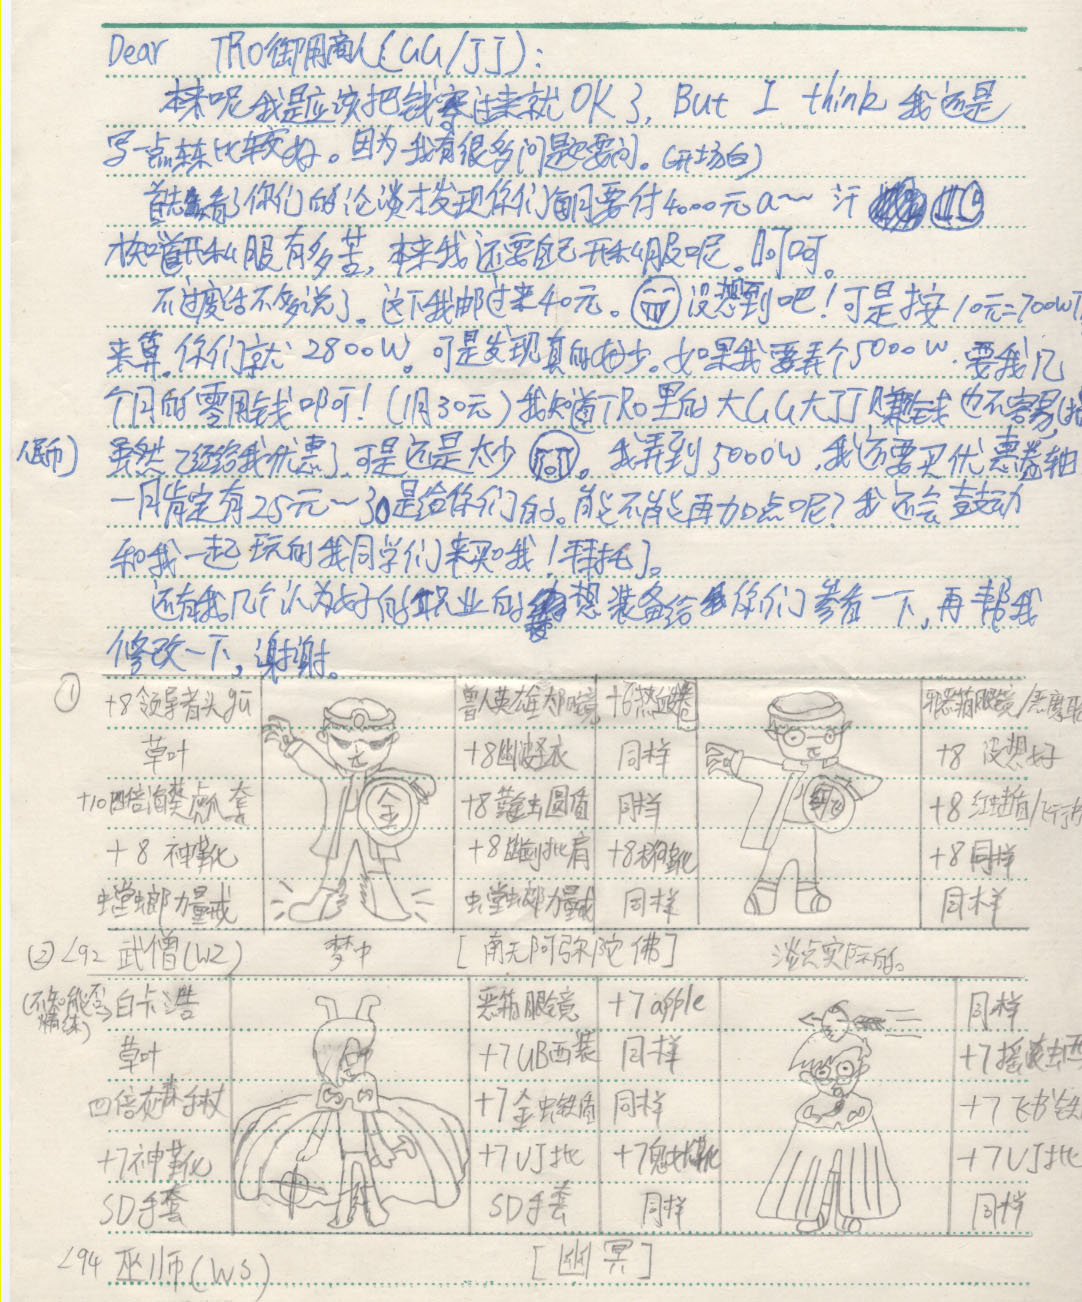 Dear TRO御用商人(GG/JJ):
本来呢我是应该把钱寄过来就OK了, But I think 我还是
写一点东东比较好。因为我有很多问题要问。(开场白)
首先看了你们的论谈才发现你们每月要付4000元a~ 汗
才知道开私服有多苦,本来我还要自己开私服呢。呵呵。
不过废话不多说了。这下我邮过来40元。没想到吧!可是按10元=700W
来算。你们就2800W。可是发现真的好少。如果我要弄个5000W.要我几
个月的零用钱呵!(1月30元)我知道TRO里的大GG大JJ赚钱也不容易,
民币) 虽然已经给我优惠了可是还是太少。我弄到5000W,我还要买优惠卷轴
一月肯定有25元~30是给你们的。能不能再加点呢?我还会鼓动
和我一起玩的我同学们来买我!拜托了。
还有我几个认为好的职业的想装备给你们参看一下,再帮我
修改一下,谢谢。
① +8领导者头gū 兽人英雄太阳镜 +6热血 邪恶箱眼镜/恶摩
草叶 +8幽波 衣 同样 +8 没想好
+10四倍 套 +8 虫圆盾 同样 +8 盾/飞行
+8 神靴 +8 披肩 +8 靴 +8同样
螳螂力量戒 金 螳螂力量戒 同样 同样
② <92 武僧(WZ) 梦中 [南无阿弥陀佛] 淡点实际的。
(不知能否精练) 白卡 恶箱眼镜 +7 apple 同样
草叶 +7UB西装 同样 +7
四倍 手杖 +7金虫铁盾 同样 +7
+7神靴 +7UJ披 +7 靴 +7UJ披
SD手套 SD手套 同样 同样
<94 巫师(WS) [幽冥]